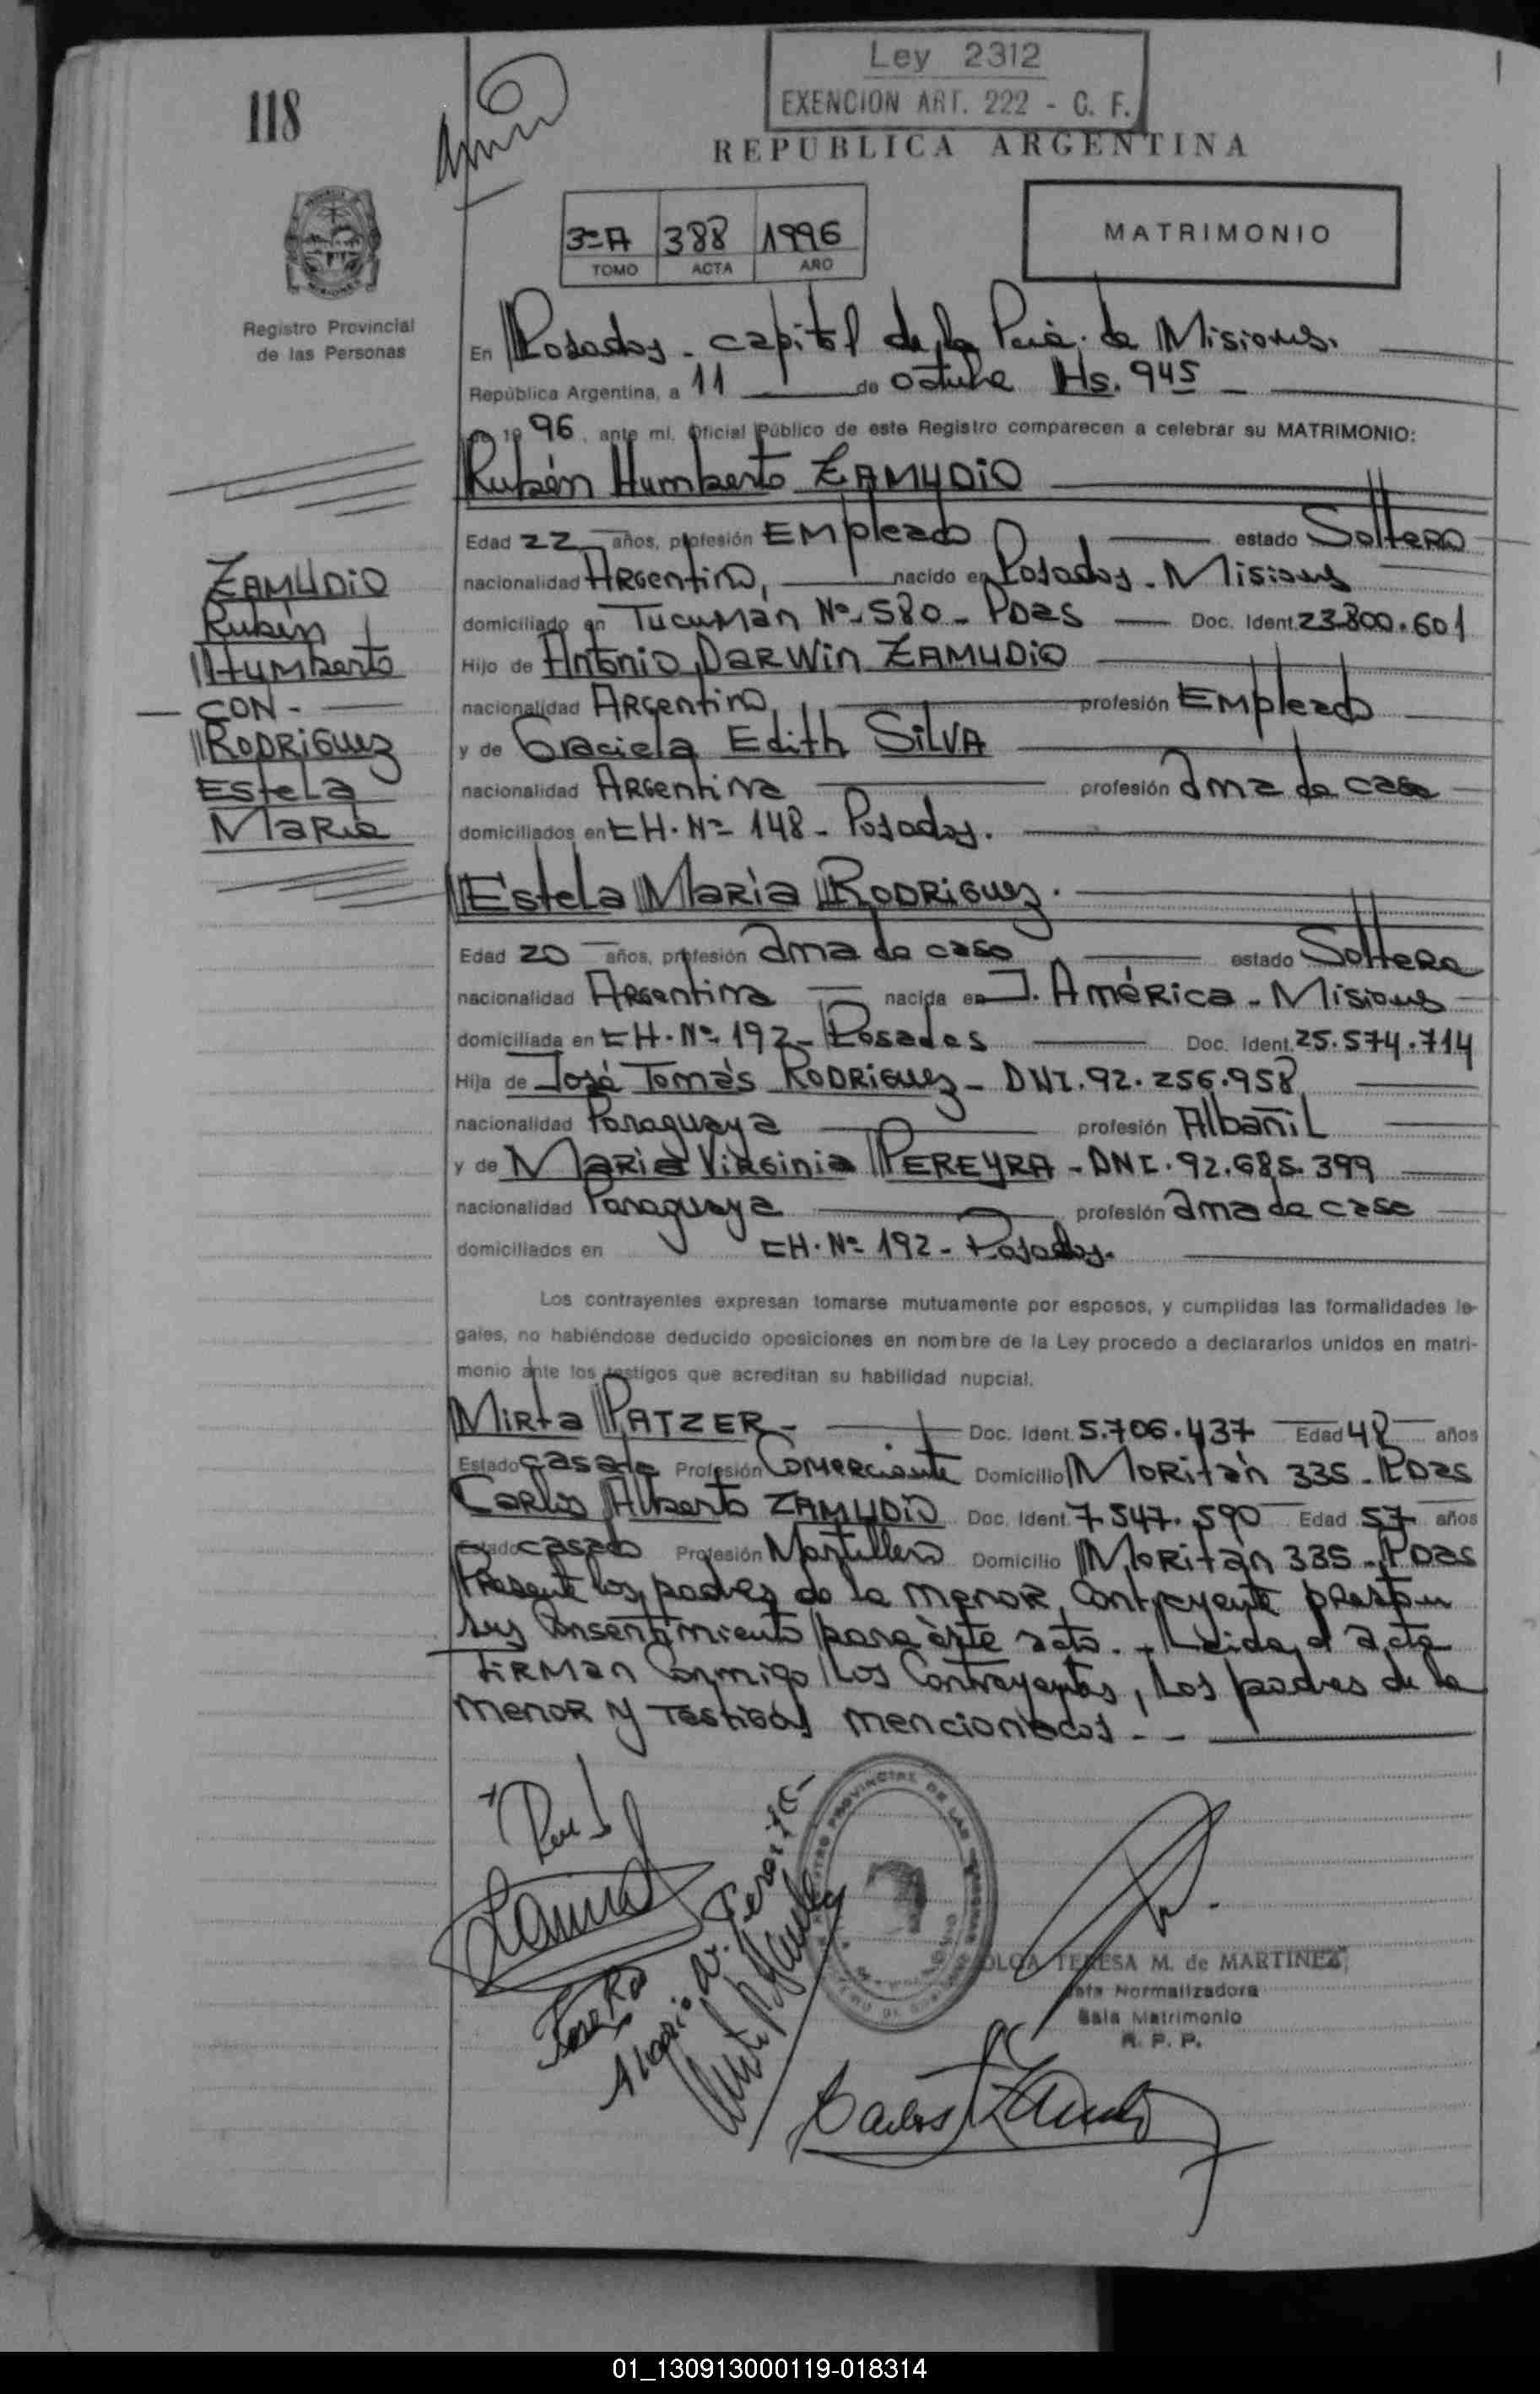 Ley 2312
EXENCION ART. 222 - C. F.
118
REPUBLICA ARGENTINA
3º A 388 1996
TOMO ACTA AÑO
MATRIMONIO
Registro Provincial
de las Personas
En Posadas - capital de la Pcia. de Misiones.
República Argentina, a 11 de octubre Hs. 945
de 1996, ante mi, Oficial Público de este Registro comparecen a celebrar su MATRIMONIO:
Rubén Humberto ZAMUDIO
Edad 22 años, profesión Empleado estado Soltero
nacionalidad Argentina, nacido en Posadas - Misiones
domiciliado en Tucumán Nº 580 - Pdas Doc. Ident. 23.800.601
Hijo de Antonio Darwin ZAMUDIO
nacionalidad Argentina profesión Empleado
y de Graciela Edith SILVA
nacionalidad Argentina profesión ama de casa
domiciliados en CH. Nº 148 - Posadas.
ZAMUDIO
Rubén
Humberto
- CON -
RODRIGUEZ
Estela
María
Estela María RODRIGUEZ.
Edad 20 años, profesión ama de casa estado Soltera
nacionalidad Argentina nacida en J. América - Misiones
domiciliada en CH. Nº 192 - Posadas Doc. Ident. 25.574.714
Hija de José Tomás RODRIGUEZ - DNI. 92.256.958
nacionalidad Paraguaya profesión Albañil
y de María Virginia PEREYRA - DNI. 92.685.399
nacionalidad Paraguaya profesión ama de casa
domiciliados en CH. Nº 192 - Posadas.
Los contrayentes expresan tomarse mutuamente por esposos, y cumplidas las formalidades le-
gales, no habiéndose deducido oposiciones en nombre de la Ley procedo a declararlos unidos en matri-
monio ante los testigos que acreditan su habilidad nupcial.
Mirta PATZER - Doc. Ident. 5.706.437 Edad 48 años
Estado casada Profesión Comerciante Domicilio Moritán 335 - Pdas
Carlos Alberto ZAMUDIO Doc. Ident. 7.547.590 Edad 57 años
Estado casado Profesión Martillero Domicilio Moritán 335 - Pdas
Presente los padres de la menor contrayente prestan
sus consentimiento para éste acto. - Leida el acta
firman conmigo los contrayentes, los padres de la
menor y testigos mencionados - -
REGISTRO PROVINCIAL DE LAS PERSONAS
OLGA TERESA M. de MARTINEZ
Jefa Normalizadora
Sala Matrimonio
R. P. P.
01_130913000119-018314